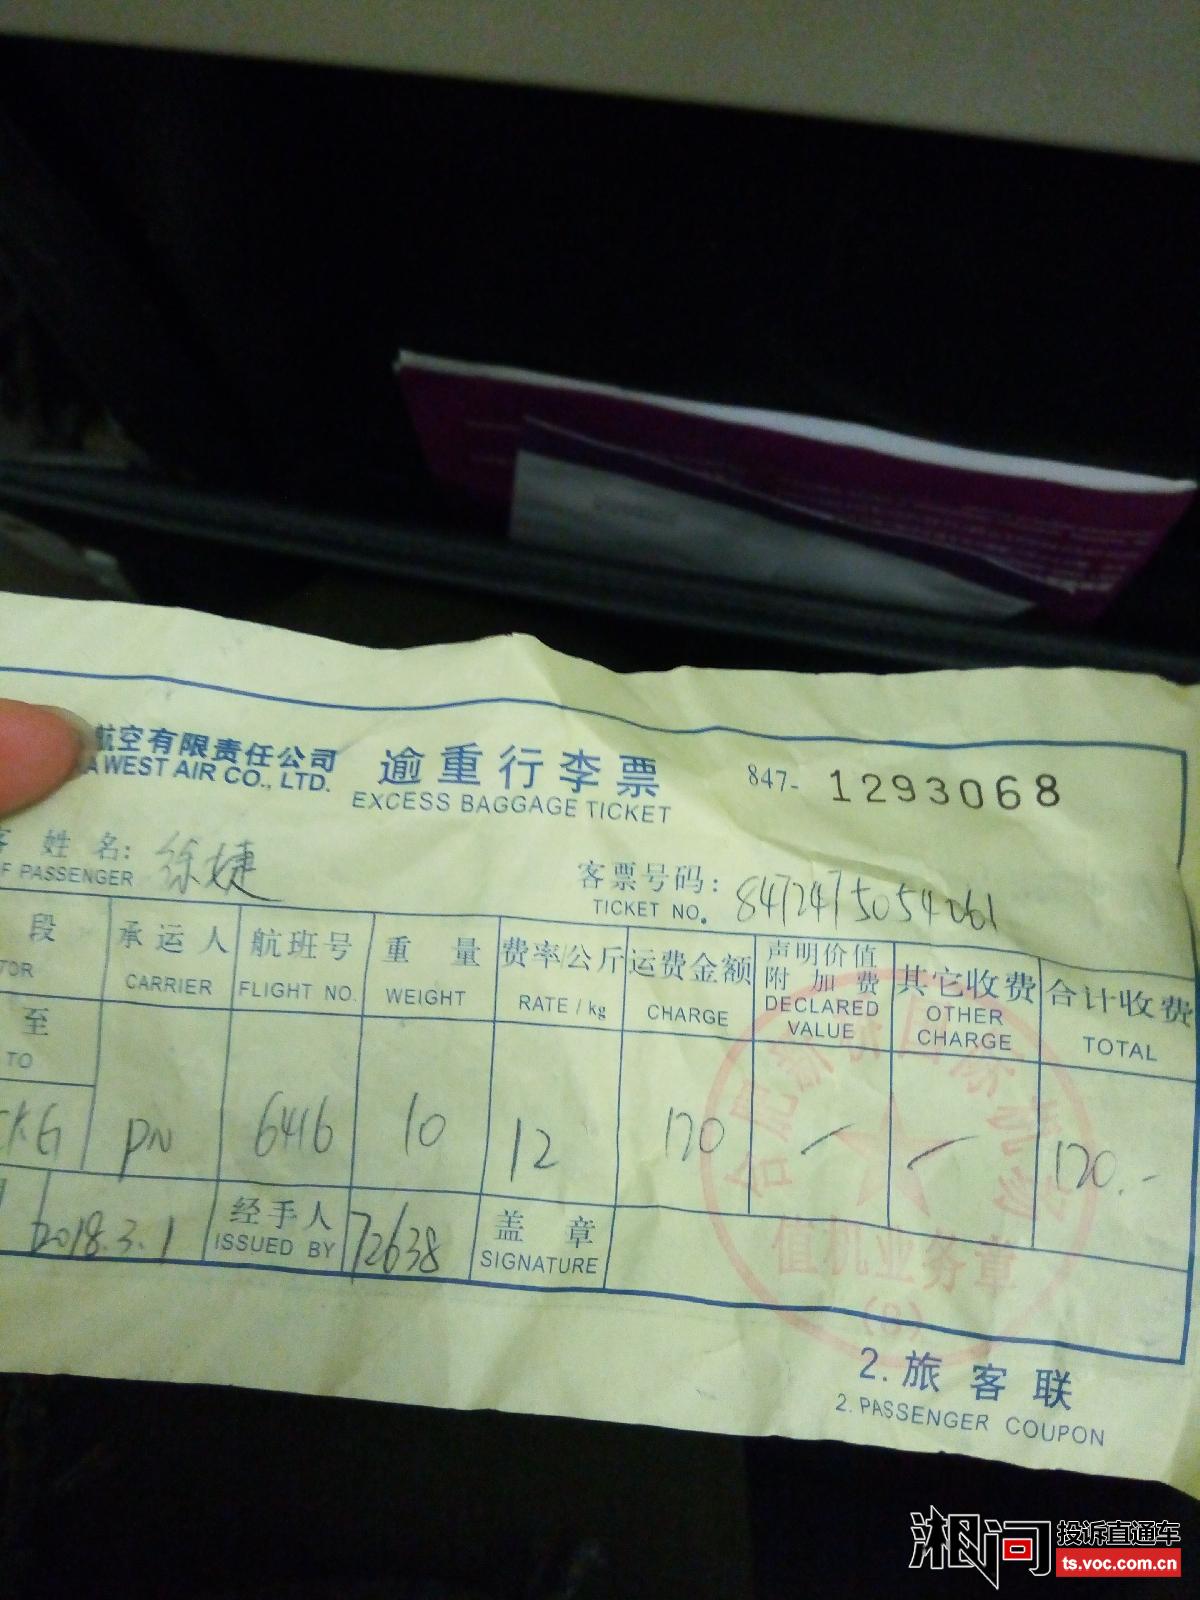 航空有限责任公司
WEST AIR CO., LTD.
逾重行李票
EXCESS BAGGAGE TICKET
847- 1293068
姓名: 徐婕
PASSENGER
客票号码: 8472475054061
TICKET NO.
段 承运人 航班号 重量 费率/公斤 运费金额 声明价值附加费 其它收费 合计收费
CARRIER FLIGHT NO. WEIGHT RATE / kg CHARGE DECLARED VALUE OTHER CHARGE TOTAL
至
TO
CKG PN 6416 10 12 120 — — 120.-
2018.3.1 经手人 72638 盖章
ISSUED BY SIGNATURE
合肥新桥国际机场
值机业务章
(8)
2.旅客联
2. PASSENGER COUPON
湘问 投诉直通车
ts.voc.com.cn